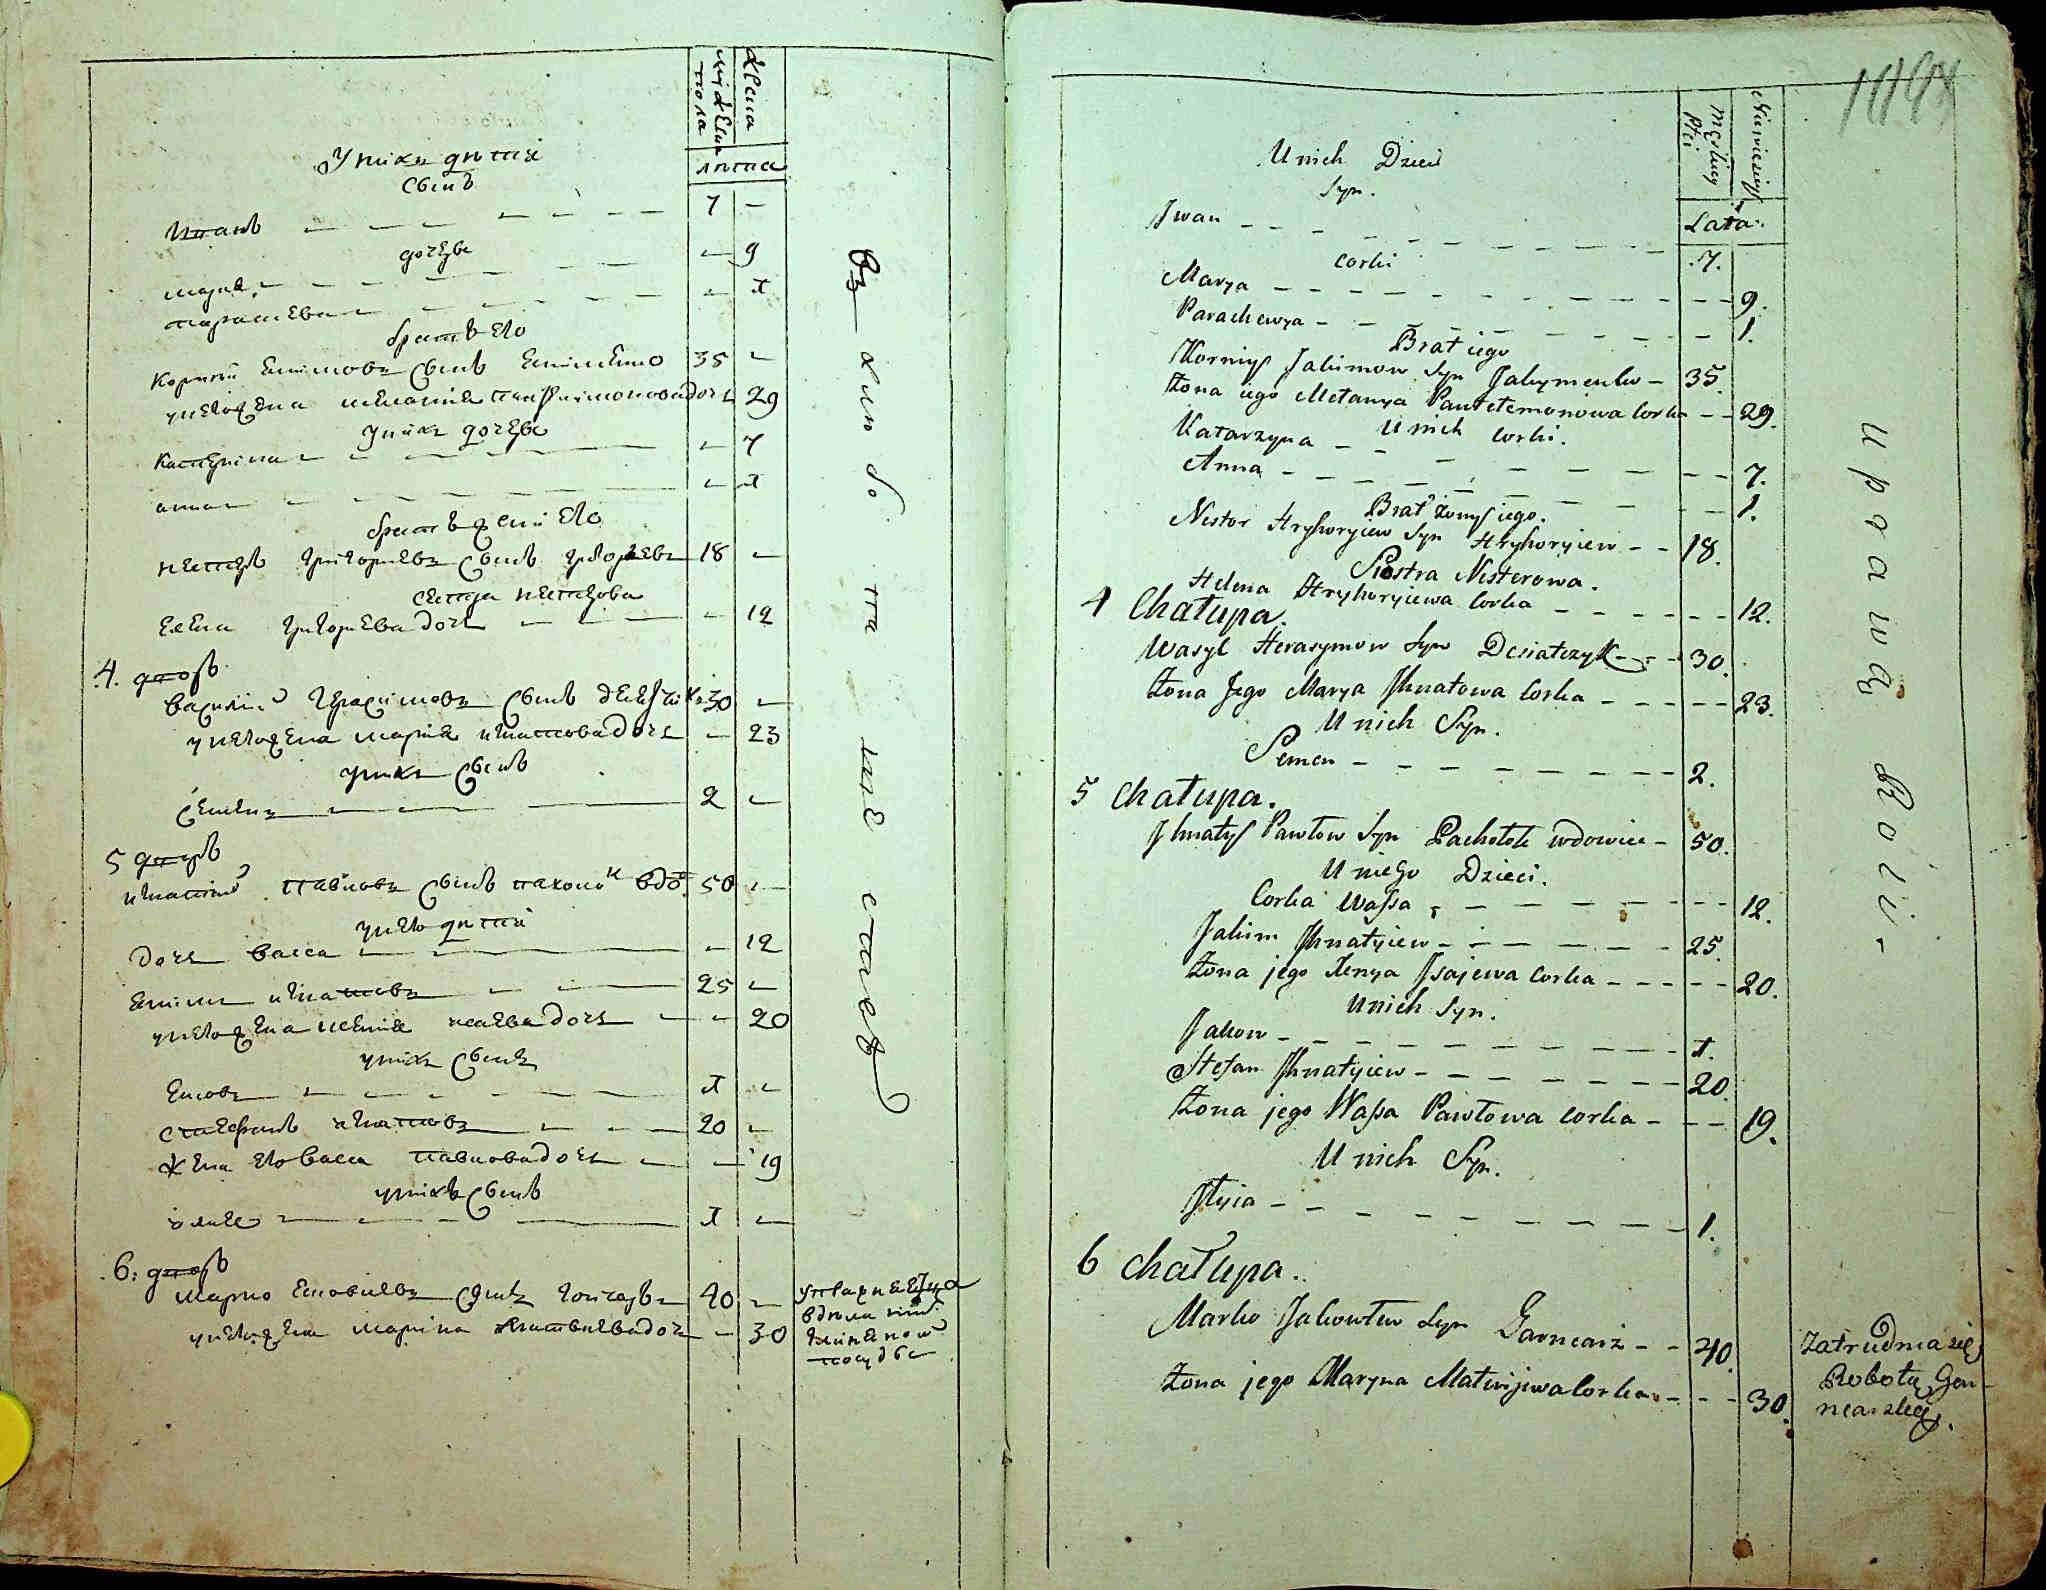 мужеска пола
женска
лѣта
У нихъ дѣти
сынъ
Иванъ 7 -
дочери
Марія - 9
Параскева - 1
братъ его
Корнѣй Екимовъ сынъ Екименко 35 -
у него жена Меланія Панфилимонова дочь 29
у нихъ дочери
Катерина - 7
Анна - 1
братъ жени его
Нестеръ Григориевъ сынъ 18 -
сестра Нестерова
Елена Григориева дочь - 12
4. дворъ
Василій Герасимовъ сынъ 30 -
у него жена Марія Игнатова дочь - 23
у нихъ сынъ
Семенъ 2 -
5 дворъ
Игнатій Павловъ сынъ Пахолокъ вдов. 50 -
у него дѣти
дочь Васса - 12
Екимъ Игнатовъ 25 -
у него жена Ксенія Исаева дочь - 20
у нихъ сынъ
Яковъ 1 -
Стефанъ Игнатовъ 20 -
жена его Васса Павлова дочь - 19
у нихъ сынъ
Илія 1 -
6. дворъ
Марко Яковлевъ сынъ Гончаръ 40 -
у него жена Марина Матвѣева дочь - 30
упражняеца
в дѣлании
глиняной
посуды
в хлѣбопашествѣ
męskiey Płci
Niewiesciey
Lata.
U nich Dzieci
Syn.
Jwan - 7.
Corki
Marya - 9.
Paraskewya - 1.
Brat iego
Korniy Jakimow Syn Jakymenko - 35
Żona iego Melanya Pantelemonowa Corka - 29.
U nich Corki.
Katarzyna - 7.
Anna - 1.
Brat żony iego.
Nestor Hryhoryiew Syn Hryhoryiew - 18.
Siostra Nesterowa.
Helena Hryhoryiewa Corka - 12.
4 Chałupa.
Wasyl Herasymow Syn Desiatczyk - 30.
Żona Jego Marya Jhnatowa Corka - 23.
U nich Syn.
Semen - 2.
5 Chałupa.
Jhnatyi Pawłow Syn Pachołok wdowiec - 50.
U niego Dzieci.
Corka Wassa - 12.
Jakim Jhnatyiew - 25.
Żona jego Xenya Jsajewa Corka - 20.
U nich Syn.
Jakow - 1.
Stefan Jhnatyiew - 20.
Żona jego Wassa Pawłowa Corka - 19.
U nich Syn.
Jlyia - 1.
6 Chałupa.
Marko Jakowlew Syn Garncarz - 40.
Żona jego Maryna Matwijewa Corka - 30.
Zatrudnia się
Robotą Gar-
ncarską.
Uprawą Roli.